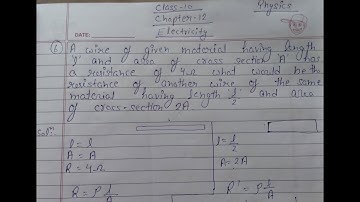 Class-10
Physics
Chapter-12
DATE:
Electricity
(6) A wire of given material having length
'l' and area of cross section 'A' has
a resistance of 4Ω what would be the
resistance of another wire of the same
material having length l/2 and area
of cross-section 2A
Solⁿ
l = l
l = l/2
A = A
A = 2A
R = 4Ω
R = ρ l/A
R' = ρ l/A